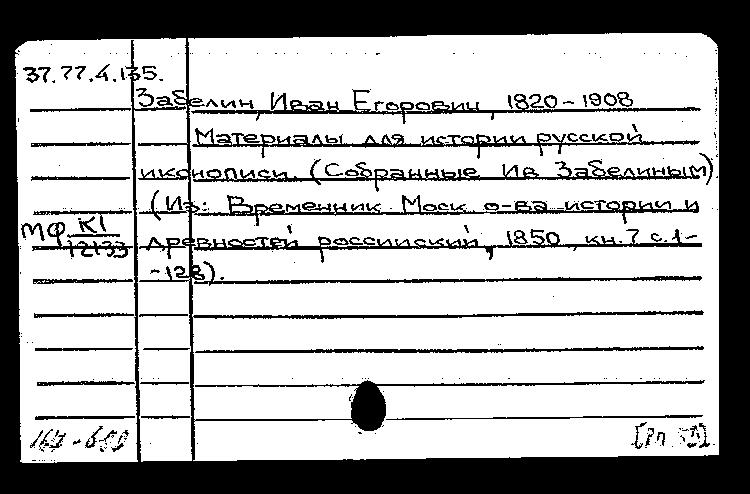 37.77.4.135.
Забелин, Иван Егорович, 1820-1908
Материалы для истории русской
иконописи. (Собранные Ив Забелиным)
(Из: Временник Моск о-ва истории и
МФ К1
12133 древностей российский, 1850, кн.7 с.1-
-128).